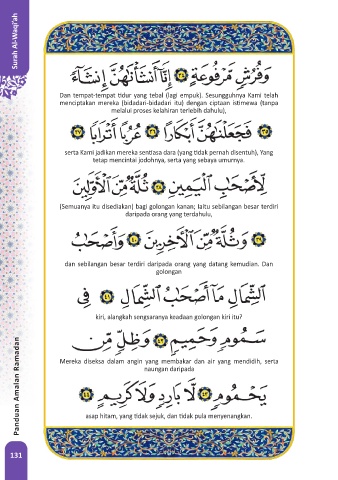 Surah Al-Waqi'ah
وَفُرُشٍ مَّرْفُوعَةٍ ٣٤ إِنَّا أَنشَأْنَاهُنَّ إِنشَاءً
Dan tempat-tempat tidur yang tebal (lagi empuk). Sesungguhnya Kami telah
menciptakan mereka (bidadari-bidadari itu) dengan ciptaan istimewa (tanpa
melalui proses kelahiran terlebih dahulu),
٣٥ فَجَعَلْنَاهُنَّ أَبْكَارًا ٣٦ عُرُبًا أَتْرَابًا ٣٧
serta Kami jadikan mereka sentiasa dara (yang tidak pernah disentuh), Yang
tetap mencintai jodohnya, serta yang sebaya umurnya.
لِّأَصْحَابِ الْيَمِينِ ٣٨ ثُلَّةٌ مِّنَ الْأَوَّلِينَ
(Semuanya itu disediakan) bagi golongan kanan; Iaitu sebilangan besar terdiri
daripada orang yang terdahulu,
٣٩ وَثُلَّةٌ مِّنَ الْآخِرِينَ ٤٠ وَأَصْحَابُ
dan sebilangan besar terdiri daripada orang yang datang kemudian. Dan
golongan
الشِّمَالِ مَا أَصْحَابُ الشِّمَالِ ٤١ فِي
kiri, alangkah sengsaranya keadaan golongan kiri itu?
سَمُومٍ وَحَمِيمٍ ٤٢ وَظِلٍّ مِّن
Mereka diseksa dalam angin yang membakar dan air yang mendidih, serta
naungan daripada
يَحْمُومٍ ٤٣ لَّا بَارِدٍ وَلَا كَرِيمٍ ٤٤
asap hitam, yang tidak sejuk, dan tidak pula menyenangkan.
Panduan Amalan Ramadan
131